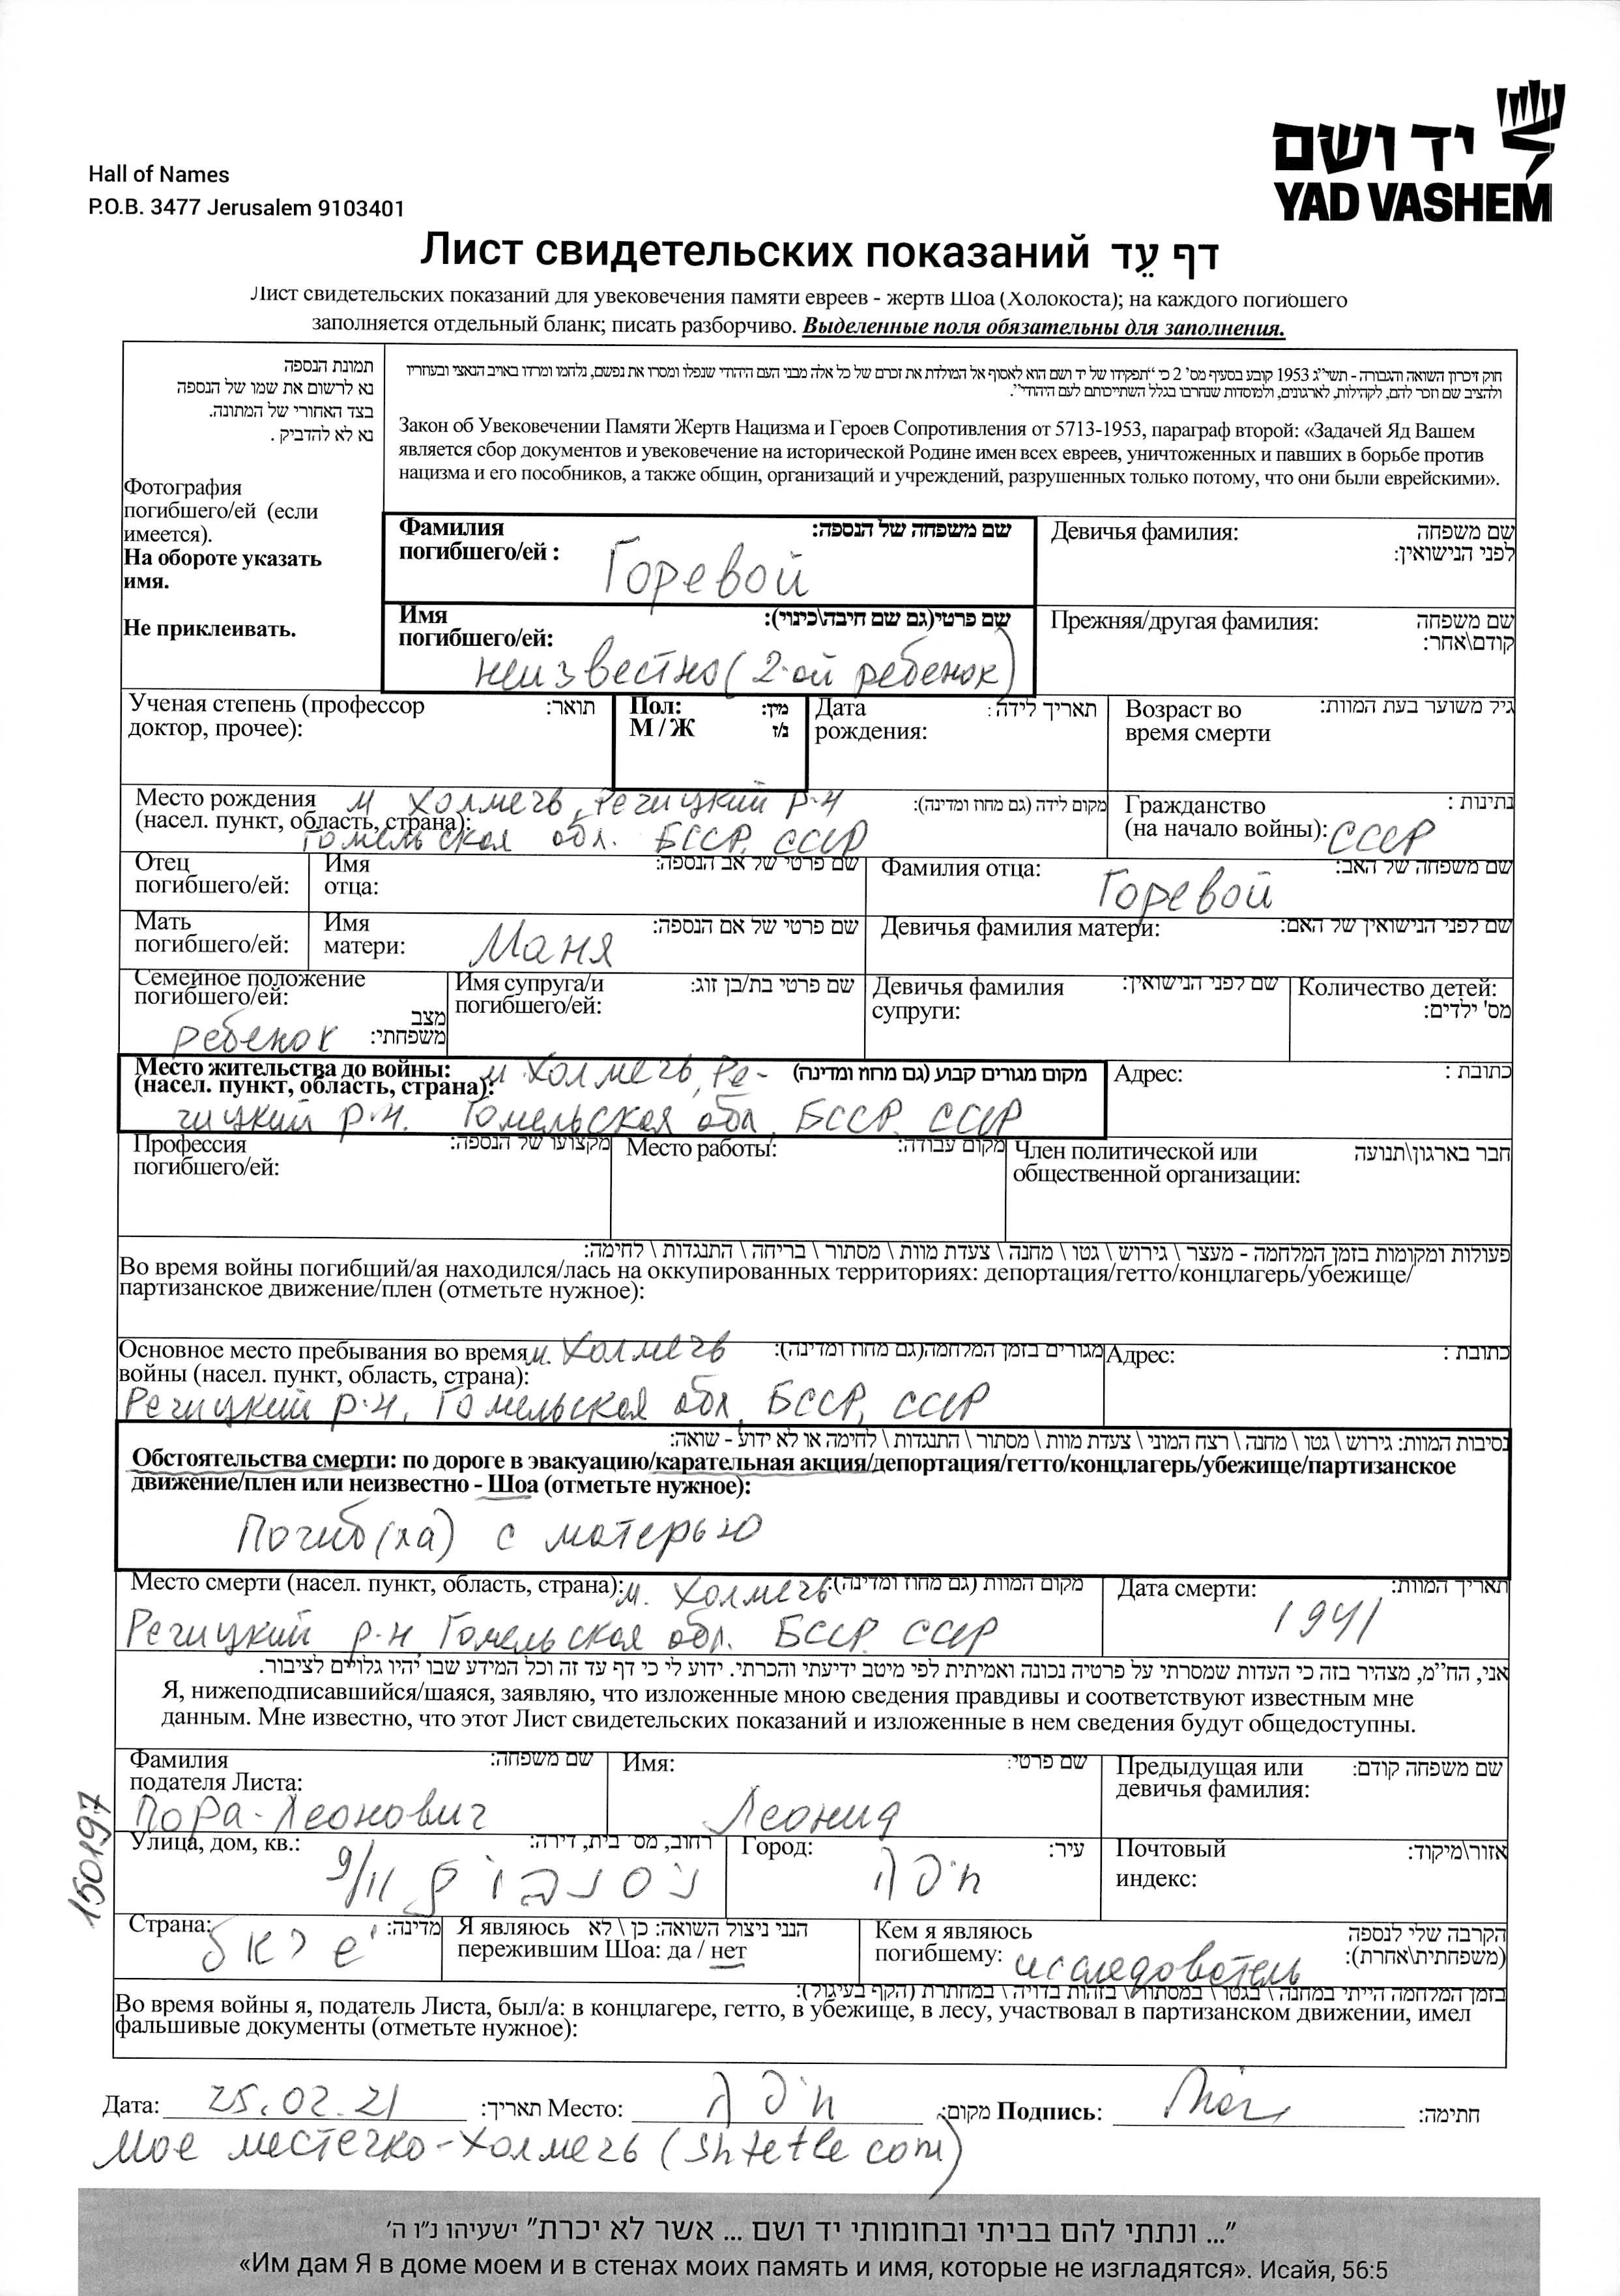 יד ושם
YAD VASHEM
Hall of Names
P.O.B. 3477 Jerusalem 9103401
Лист свидетельских показаний דף עֵד
Лист свидетельских показаний для увековечения памяти евреев - жертв Шоа (Холокоста); на каждого погибшего
заполняется отдельный бланк; писать разборчиво. Выделенные поля обязательны для заполнения.
תמונת הנספה
נא לרשום את שמו של הנספה
בצד האחורי של המתונה.
נא לא להדביק .
Фотография
погибшего/ей (если
имеется).
На обороте указать
имя.
Не приклеивать.
חוק זיכרון השואה והגבורה - תשי״ג 1953 קובע בסעיף מס' 2 כי "תפקידו של יד ושם הוא לאסוף אל המולדת את זכרם של כל אלה מבני העם היהודי שנפלו ומסרו את נפשם, נלחמו ומרדו באויב הנאצי ובעוזריו
ולהציב שם וזכר להם, לקהילות, לארגונים, ולמוסדות שנחרבו בגלל השתייכותם לעם היהודי".
Закон об Увековечении Памяти Жертв Нацизма и Героев Сопротивления от 5713-1953, параграф второй: «Задачей Яд Вашем
является сбор документов и увековечение на исторической Родине имен всех евреев, уничтоженных и павших в борьбе против
нацизма и его пособников, а также общин, организаций и учреждений, разрушенных только потому, что они были еврейскими».
Фамилия שם משפחה של הנספה:
погибшего/ей : Горевой
Девичья фамилия: שם משפחה
לפני הנישואין:
Имя שם פרטי(גם שם חיבה\כינוי):
погибшего/ей:
неизвестно (2-ой ребенок)
Прежняя/другая фамилия: שם משפחה
קודם\אחר:
Ученая степень (профессор תואר:
доктор, прочее):
Пол: מין:
М / Ж נ/ז
Дата תאריך לידה:
рождения:
Возраст во גיל משוער בעת המוות:
время смерти
Место рождения м Холмечь, Речицкий р-н מקום לידה (גם מחוז ומדינה):
(насел. пункт, область, страна):
Гомельская обл. БССР, СССР
Гражданство נתינות :
(на начало войны): СССР
Отец
погибшего/ей:
Имя שם פרטי של אב הנספה:
отца:
Фамилия отца: שם משפחה של האב:
Горевой
Мать
погибшего/ей:
Имя שם פרטי של אם הנספה:
матери: Маня
Девичья фамилия матери: שם לפני הנישואין של האם:
Семейное положение
погибшего/ей:
מצב
משפחתי:
ребенок
Имя супруга/и שם פרטי בת/בן זוג:
погибшего/ей:
Девичья фамилия שם לפני הנישואין:
супруги:
Количество детей:
מס' ילדים:
Место жительства до войны: м Холмечь, Ре- מקום מגורים קבוע (גם מחוז ומדינה)
(насел. пункт, область, страна):
чицкий р-н. Гомельская обл, БССР, СССР
Адрес: כתובת :
Профессия מקצועו של הנספה:
погибшего/ей:
Место работы: מקום עבודה:
Член политической или חבר בארגון\תנועה
общественной организации:
פעולות ומקומות בזמן המלחמה - מעצר \ גירוש \ גטו \ מחנה \ צעדת מוות \ מסתור \ בריחה \ התנגדות \ לחימה:
Во время войны погибший/ая находился/лась на оккупированных территориях: депортация/гетто/концлагерь/убежище/
партизанское движение/плен (отметьте нужное):
Основное место пребывания во время м. Холмечь מגורים בזמן המלחמה(גם מחוז ומדינה):
войны (насел. пункт, область, страна):
Речицкий р-н, Гомельская обл, БССР, СССР
Адрес: כתובת :
נסיבות המוות: גירוש \ גטו \ מחנה \ רצח המוני \ צעדת מוות \ מסתור \ התנגדות \ לחימה או לא ידוע - שואה:
Обстоятельства смерти: по дороге в эвакуацию/карательная акция/депортация/гетто/концлагерь/убежище/партизанское
движение/плен или неизвестно - Шоа (отметьте нужное):
Погиб(ла) с матерью
Место смерти (насел. пункт, область, страна): м. Холмечь מקום המוות (גם מחוז ומדינה):
Речицкий р-н Гомельская обл. БССР. СССР
Дата смерти: תאריך המוות:
1941
אני, הח"מ, מצהיר בזה כי העדות שמסרתי על פרטיה נכונה ואמיתית לפי מיטב ידיעתי והכרתי. ידוע לי כי דף עד זה וכל המידע שבו יהיו גלויים לציבור.
Я, нижеподписавшийся/шаяся, заявляю, что изложенные мною сведения правдивы и соответствуют известным мне
данным. Мне известно, что этот Лист свидетельских показаний и изложенные в нем сведения будут общедоступны.
Фамилия שם משפחה:
подателя Листа:
Пора-Леонович
Имя: שם פרטי:
Леонид
Предыдущая или שם משפחה קודם:
девичья фамилия:
150197
Улица, дом, кв.: רחוב, מס' בית, דירה:
9/11
Город: עיר:
חיפה
Почтовый אזור\מיקוד:
индекс:
Страна: מדינה:
ישראל
Я являюсь הנני ניצול השואה: כן \ לא
пережившим Шоа: да / нет
Кем я являюсь הקרבה שלי לנספה
погибшему: исследователь (משפחתית\אחרת):
בזמן המלחמה הייתי במחנה \ בגטו \ במסתור \ בזהות בדויה \ במחתרת (הקף בעיגול):
Во время войны я, податель Листа, был/а: в концлагере, гетто, в убежище, в лесу, участвовал в партизанском движении, имел
фальшивые документы (отметьте нужное):
Дата: 25.02.21 תאריך: Место: חיפה מקום: Подпись: חתימה:
Мое местечко-Холмечь (shtetle com)
"... ונתתי להם בביתי ובחומותי יד ושם ... אשר לא יכרת" ישעיהו נ"ו ה'
«Им дам Я в доме моем и в стенах моих память и имя, которые не изгладятся». Исайя, 56:5